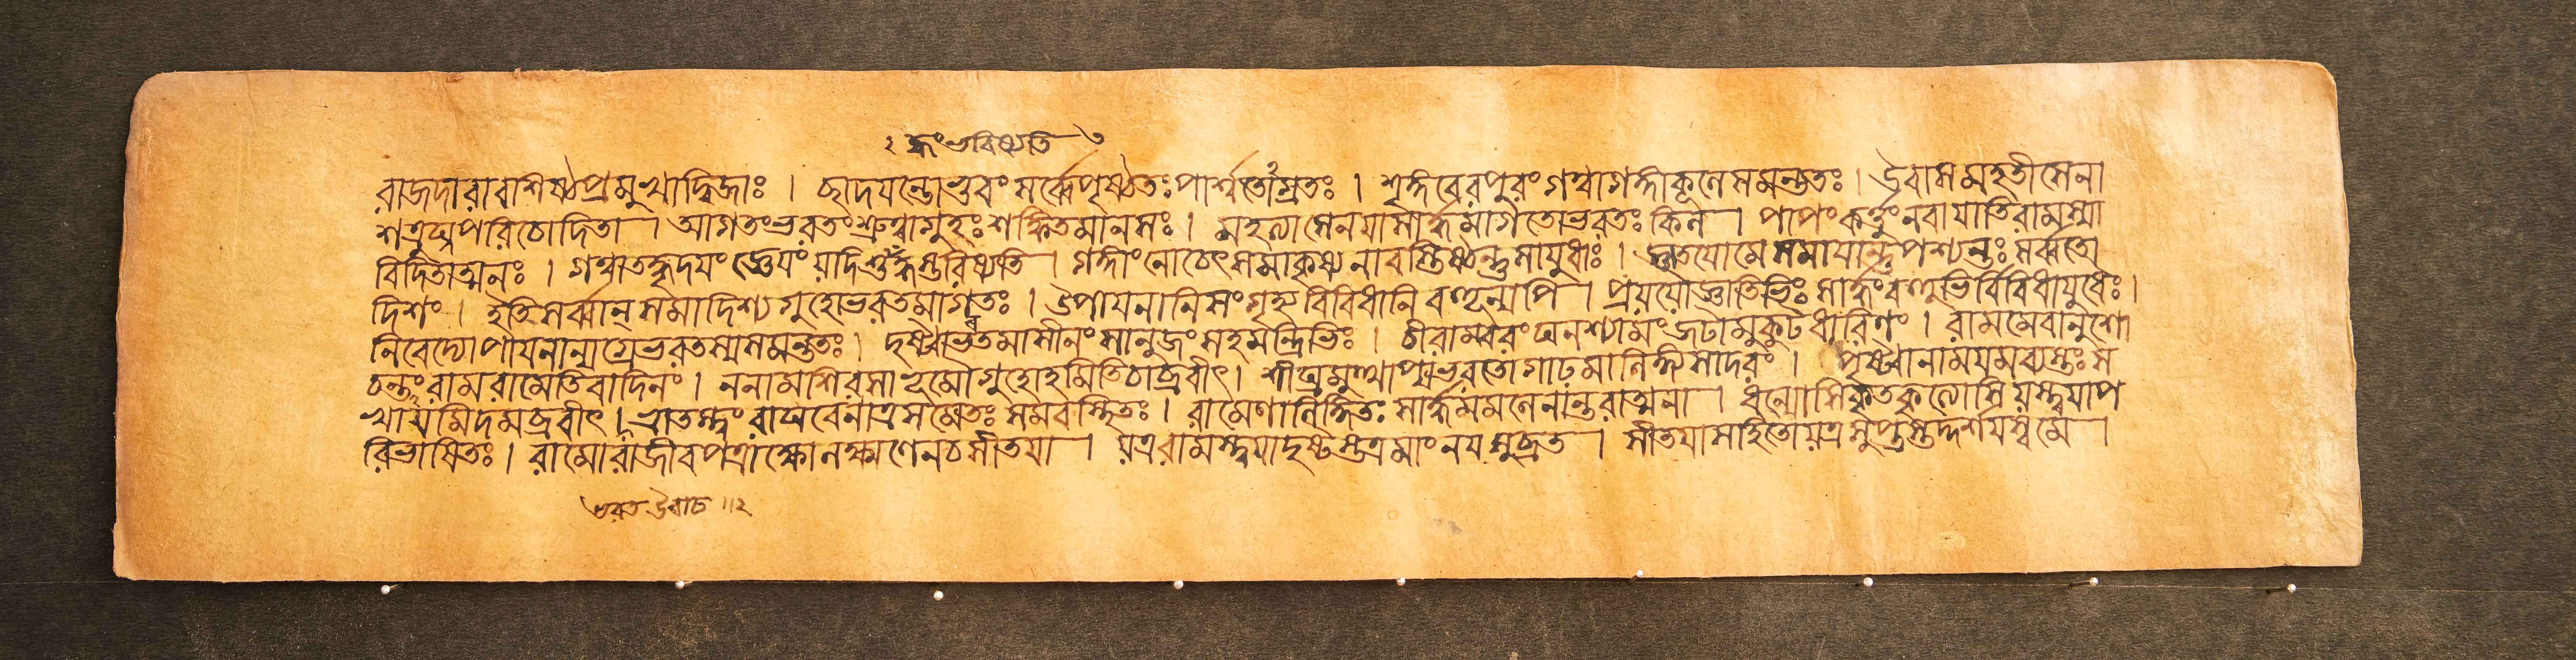 ভবিষ্যতি
রাজদারা বশিষ্ঠপ্রমুখা দ্বিজাঃ । ছাদয়ন্তো ভুবং সর্ব্বে পৃষ্ঠতঃ পার্শ্বতোগ্রতঃ । শৃঙ্গিবেরপুরং গত্বা গঙ্গাকূলে সমন্ততঃ । উবাস মহতী সেনা
শত্রুঘ্নপরিচোদিতা । আগতং ভরতং শ্রুত্বা গুহঃ শঙ্কিতমানসঃ । মহত্যা সেনয়া সার্দ্ধমাগতো ভরতঃ কিল । পাপং কর্ত্তুং ন বা যাতি রামস্যা
বিদিতাত্মনঃ । গত্বা তদ্ধৃদয়ং জ্ঞেয়ং যদি শুদ্ধস্তরিষ্যতি । গঙ্গাং নোচেৎ সমাকৃষ্য নাবস্তিষ্ঠন্তু সায়ুধাঃ । জ্ঞাতয়ো মে সমায়ান্তু পশ্যন্তঃ সর্ব্বতো
দিশং । ইতি সর্ব্বান্ সমাদিশ্য গুহো ভরতমাগতঃ । উপায়নানি সংগৃহ্য বিবিধানি বহূন্যপি । প্রযযৌ জ্ঞাতিভিঃ সার্দ্ধং বহুভির্বিবিধায়ুধৈঃ ।
নিবেদ্যোপায়নান্যগ্রে ভরতস্য সমন্ততঃ । দৃষ্ট্বা ভরতমাসীনং সানুজং সহ মন্ত্রিভিঃ । চীরাম্বরং ঘনশ্যামং জটামুকুটধারিণং । রামমেবানুশো
চন্তং রামরামেতি বাদিনং । ননাম শিরসা ভূমৌ গুহোহমিতি চাব্রবীৎ । শীঘ্রমুত্থাপ্য ভরতো গাঢ়মালিঙ্গ্য সাদরং । পৃষ্ট্বানাময়মব্যগ্রঃ স
খায়মিদমব্রবীৎ । ভ্রাতস্ত্বং রাঘবেনাত্র সমেতঃ সমবস্থিতঃ । রামেণালিঙ্গিতঃ সার্দ্ধমমলেনান্তরাত্মনা । ধন্যোসি কৃতকৃত্যোসি যস্ত্বয়া প
রিভাষিতঃ । রামো রাজীবপত্রাক্ষো লক্ষ্মণেন চ সীতয়া । যত্র রামস্ত্বয়া দৃষ্টস্তত্র মাং নয় সুব্রত । সীতয়া সহিতো যত্র সুপ্তস্তদ্দর্শয়স্ব মে ।
ভরত উবাচ ॥২